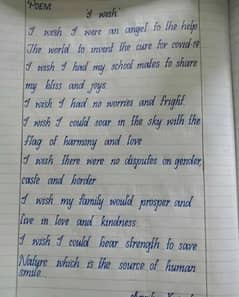 "POEM
'I wish'
I wish I were an angel to the help
The world to invent the cure for covid-19
I wish I had my school mates to share
my bliss and joys.
I wish I had no worries and fright.
I wish I could soar in the sky with the
flag of harmony and love
I wish there were no disputes on gender,
caste and border
I wish my family would prosper and
live in love and kindness.
I wish I could bear strength to save
Nature which is the source of human
smile...